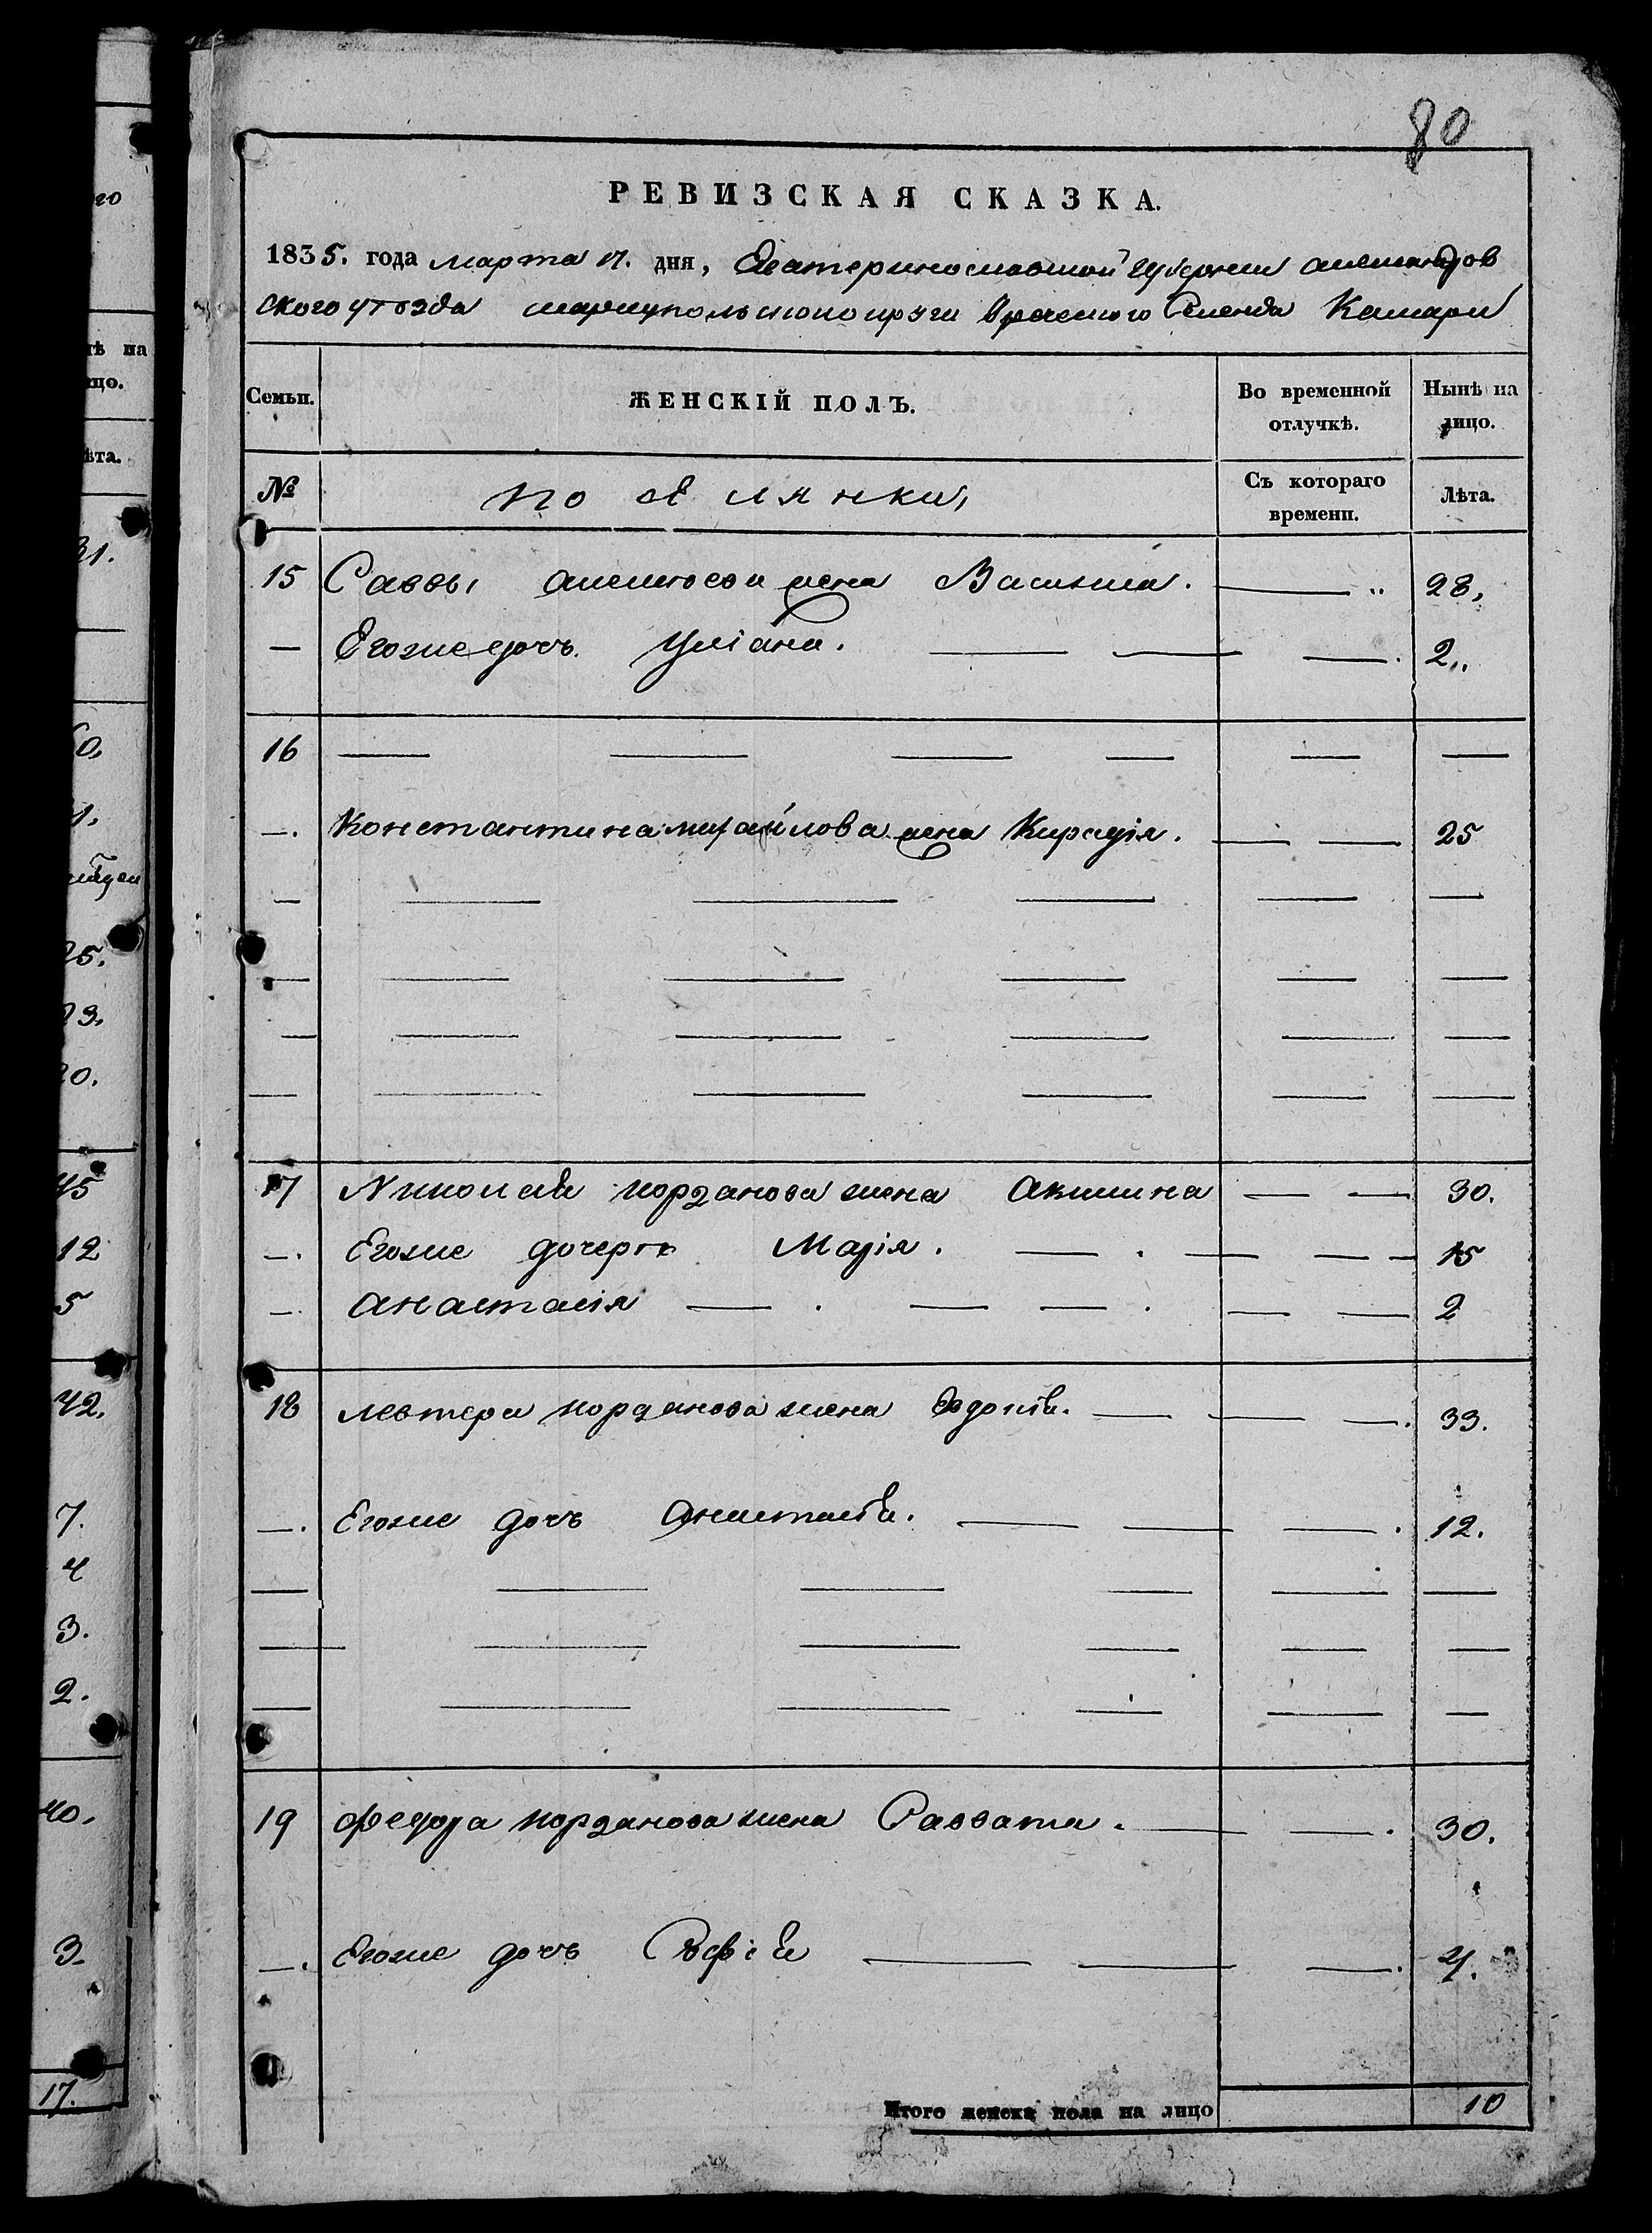 80
РЕВИЗСКАЯ СКАЗКА.
1835. года марта 17. дня, Екатеринославской губернии александров
ского уѣзда мариупольского Греческого Селенія Камари
Семьи.
ЖЕНСКІЙ ПОЛЪ.
Во временной отлучкѣ.
Нынѣ на лицо.
№
поселянки,
Съ котораго времени.
Лѣта.
15 Саввы алексѣева жена Василиса. 28,
— Егоже дочъ Уліана. 2,,
16
—. Константина михайлова жена Кирадія. 25
17 Николая иорданова жена Акилина 30.
—. Егоже дочери Марія. 15
—. анастасія 2
18 левтера иорданова жена Евдокія. 33.
—. Егоже дочъ Анастасія. 12.
19 федора иорданова жена Савата. 30.
—. Егоже дочъ Софія 4.
Итого женска пола на лицо 10
го
ѣ на
цо.
ѣта.
31.
0,
1,
25.
23.
20.
45
12
5
42.
7.
4
3.
2.
40.
3.
17.